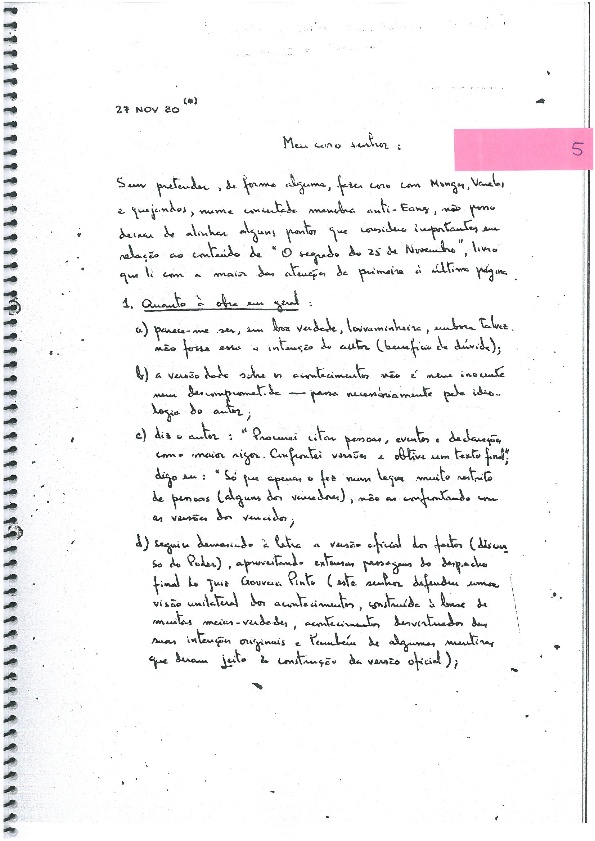 27 NOV 80 (*)
Meu caro senhor:
5
Sem pretender, de forma alguma, fazer coro com Monges, Varelas
e quejandos, numa concertada manobra anti-Eanes, não posso
deixar de alinhar alguns pontos que considero importantes em
relação ao conteúdo de "O segredo do 25 de Novembro", livro
que li com a maior das atenções da primeira à última página.
1. Quanto à obra em geral:
a) parece-me ser, em boa verdade, louvaminheira, embora talvez
não fosse essa a intenção do autor (benefício da dúvida);
b) a versão dada sobre os acontecimentos não é nem inocente
nem descomprometida — passa necessáriamente pela ideo-
logia do autor;
c) diz o autor: "Procurei citar pessoas, eventos e declarações
com o maior rigor. Confrontei versões e obtive um texto final",
digo eu: "Só que apenas o fez num leque muito restrito
de pessoas (alguns dos vencedores), não as confrontando com
as versões dos vencidos;
d) seguiu demasiado à letra a versão oficial dos factos (discur-
so do Poder), aproveitando extensas passagens do despacho
final do Juiz Gouveia Pinto (este senhor defendeu uma
visão unilateral dos acontecimentos, construída à base de
muitas meias-verdades, acontecimentos desvirtuados das
suas intenções originais e também de algumas mentiras
que deram jeito à construção da versão oficial);